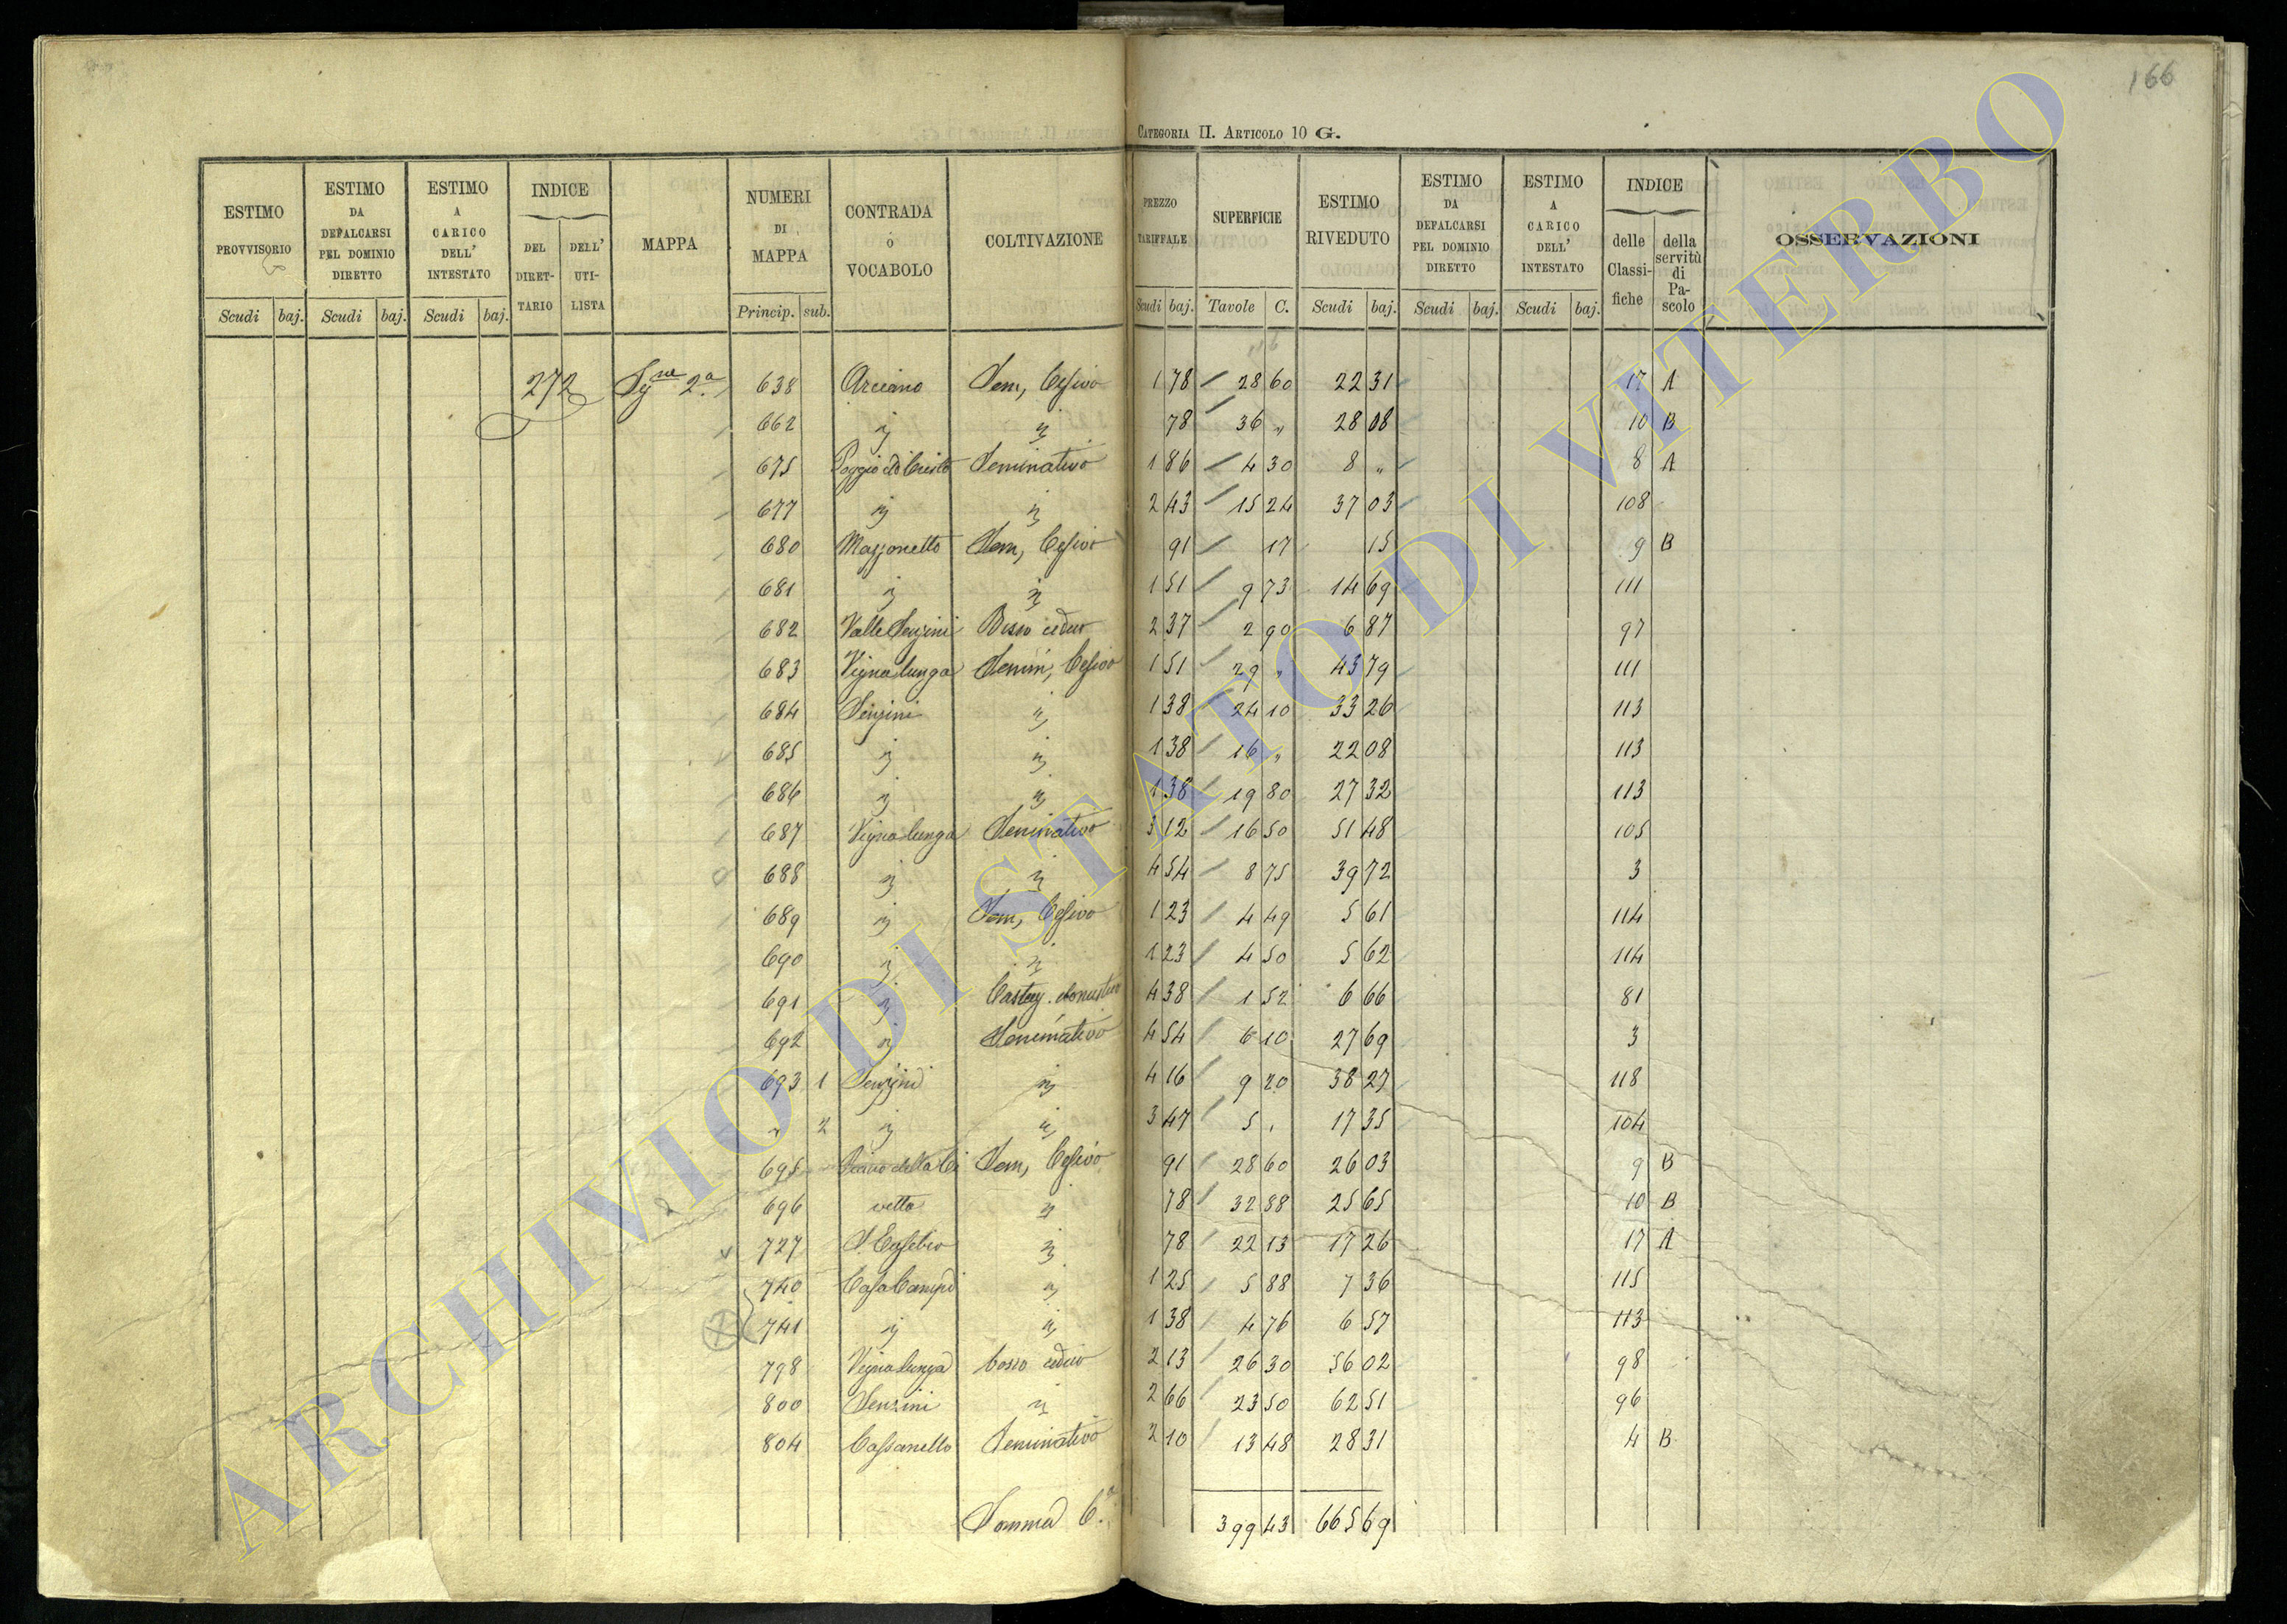 166
CATEGORIA II. ARTICOLO 10 G.
ESTIMO PROVVISORIO Scudi baj.
ESTIMO DA DEFALCARSI PEL DOMINIO DIRETTO Scudi baj.
ESTIMO A CARICO DELL' INTESTATO Scudi baj.
INDICE DEL DIRETTARIO DELL' UTILISTA
MAPPA
NUMERI DI MAPPA Princip. sub.
CONTRADA o VOCABOLO
COLTIVAZIONE
PREZZO TARIFFALE Scudi baj.
SUPERFICIE Tavole C.
ESTIMO RIVEDUTO Scudi baj.
ESTIMO DA DEFALCARSI PEL DOMINIO DIRETTO Scudi baj.
ESTIMO A CARICO DELL' INTESTATO Scudi baj.
INDICE delle Classifiche della servitù di Pascolo
OSSERVAZIONI
272 2a 638 Arciano Sem, Cesivo 1 78 28 60 22 31 17 A
662 " " 78 36 " 28 08 10 B
675 Poggio del Seminativo 1 86 4 30 8 " 8 A
677 " " 2 43 15 24 37 03 108
680 Mazzonetto Sem, Cesivo 91 17 15 9 B
681 " " 1 51 9 73 14 69 111
682 Valle Senzini Bosco ceduo 2 37 2 90 6 87 97
683 Vigna lunga Semin, Cesivo 1 51 29 " 43 79 111
684 Senzini " 1 38 24 10 33 26 113
685 " " 1 38 16 " 22 08 113
686 " " 1 38 19 80 27 32 113
687 Vigna lunga Seminativo 3 12 16 50 51 48 105
688 " " 4 54 8 75 39 72 3
689 " Sem, Cesivo 1 23 4 49 5 61 114
690 " " 1 23 4 50 5 62 114
691 " 4 38 1 52 6 66 81
692 " Seminativo 4 54 6 10 27 69 3
693 1 Senzini " 4 16 9 20 38 27 118
" 2 " " 3 47 5 , 17 35 104
695 Piano della Ci Sem, Cesivo 91 28 60 26 03 9 B
696 vetta " 78 32 88 25 65 10 B
727 S. Eusebio " 78 22 13 17 26 17 A
740 Casa Campi " 1 25 5 88 7 36 115
741 " " 1 38 4 76 6 57 113
798 Vigna lunga bosco ceduo 2 13 26 30 56 02 98
800 Senzini " 2 66 23 50 62 51 96
804 Cassanello Seminativo 2 10 13 48 28 31 4 B
Somma 399 43 665 69
ARCHIVIO DI STATO DI VITERBO